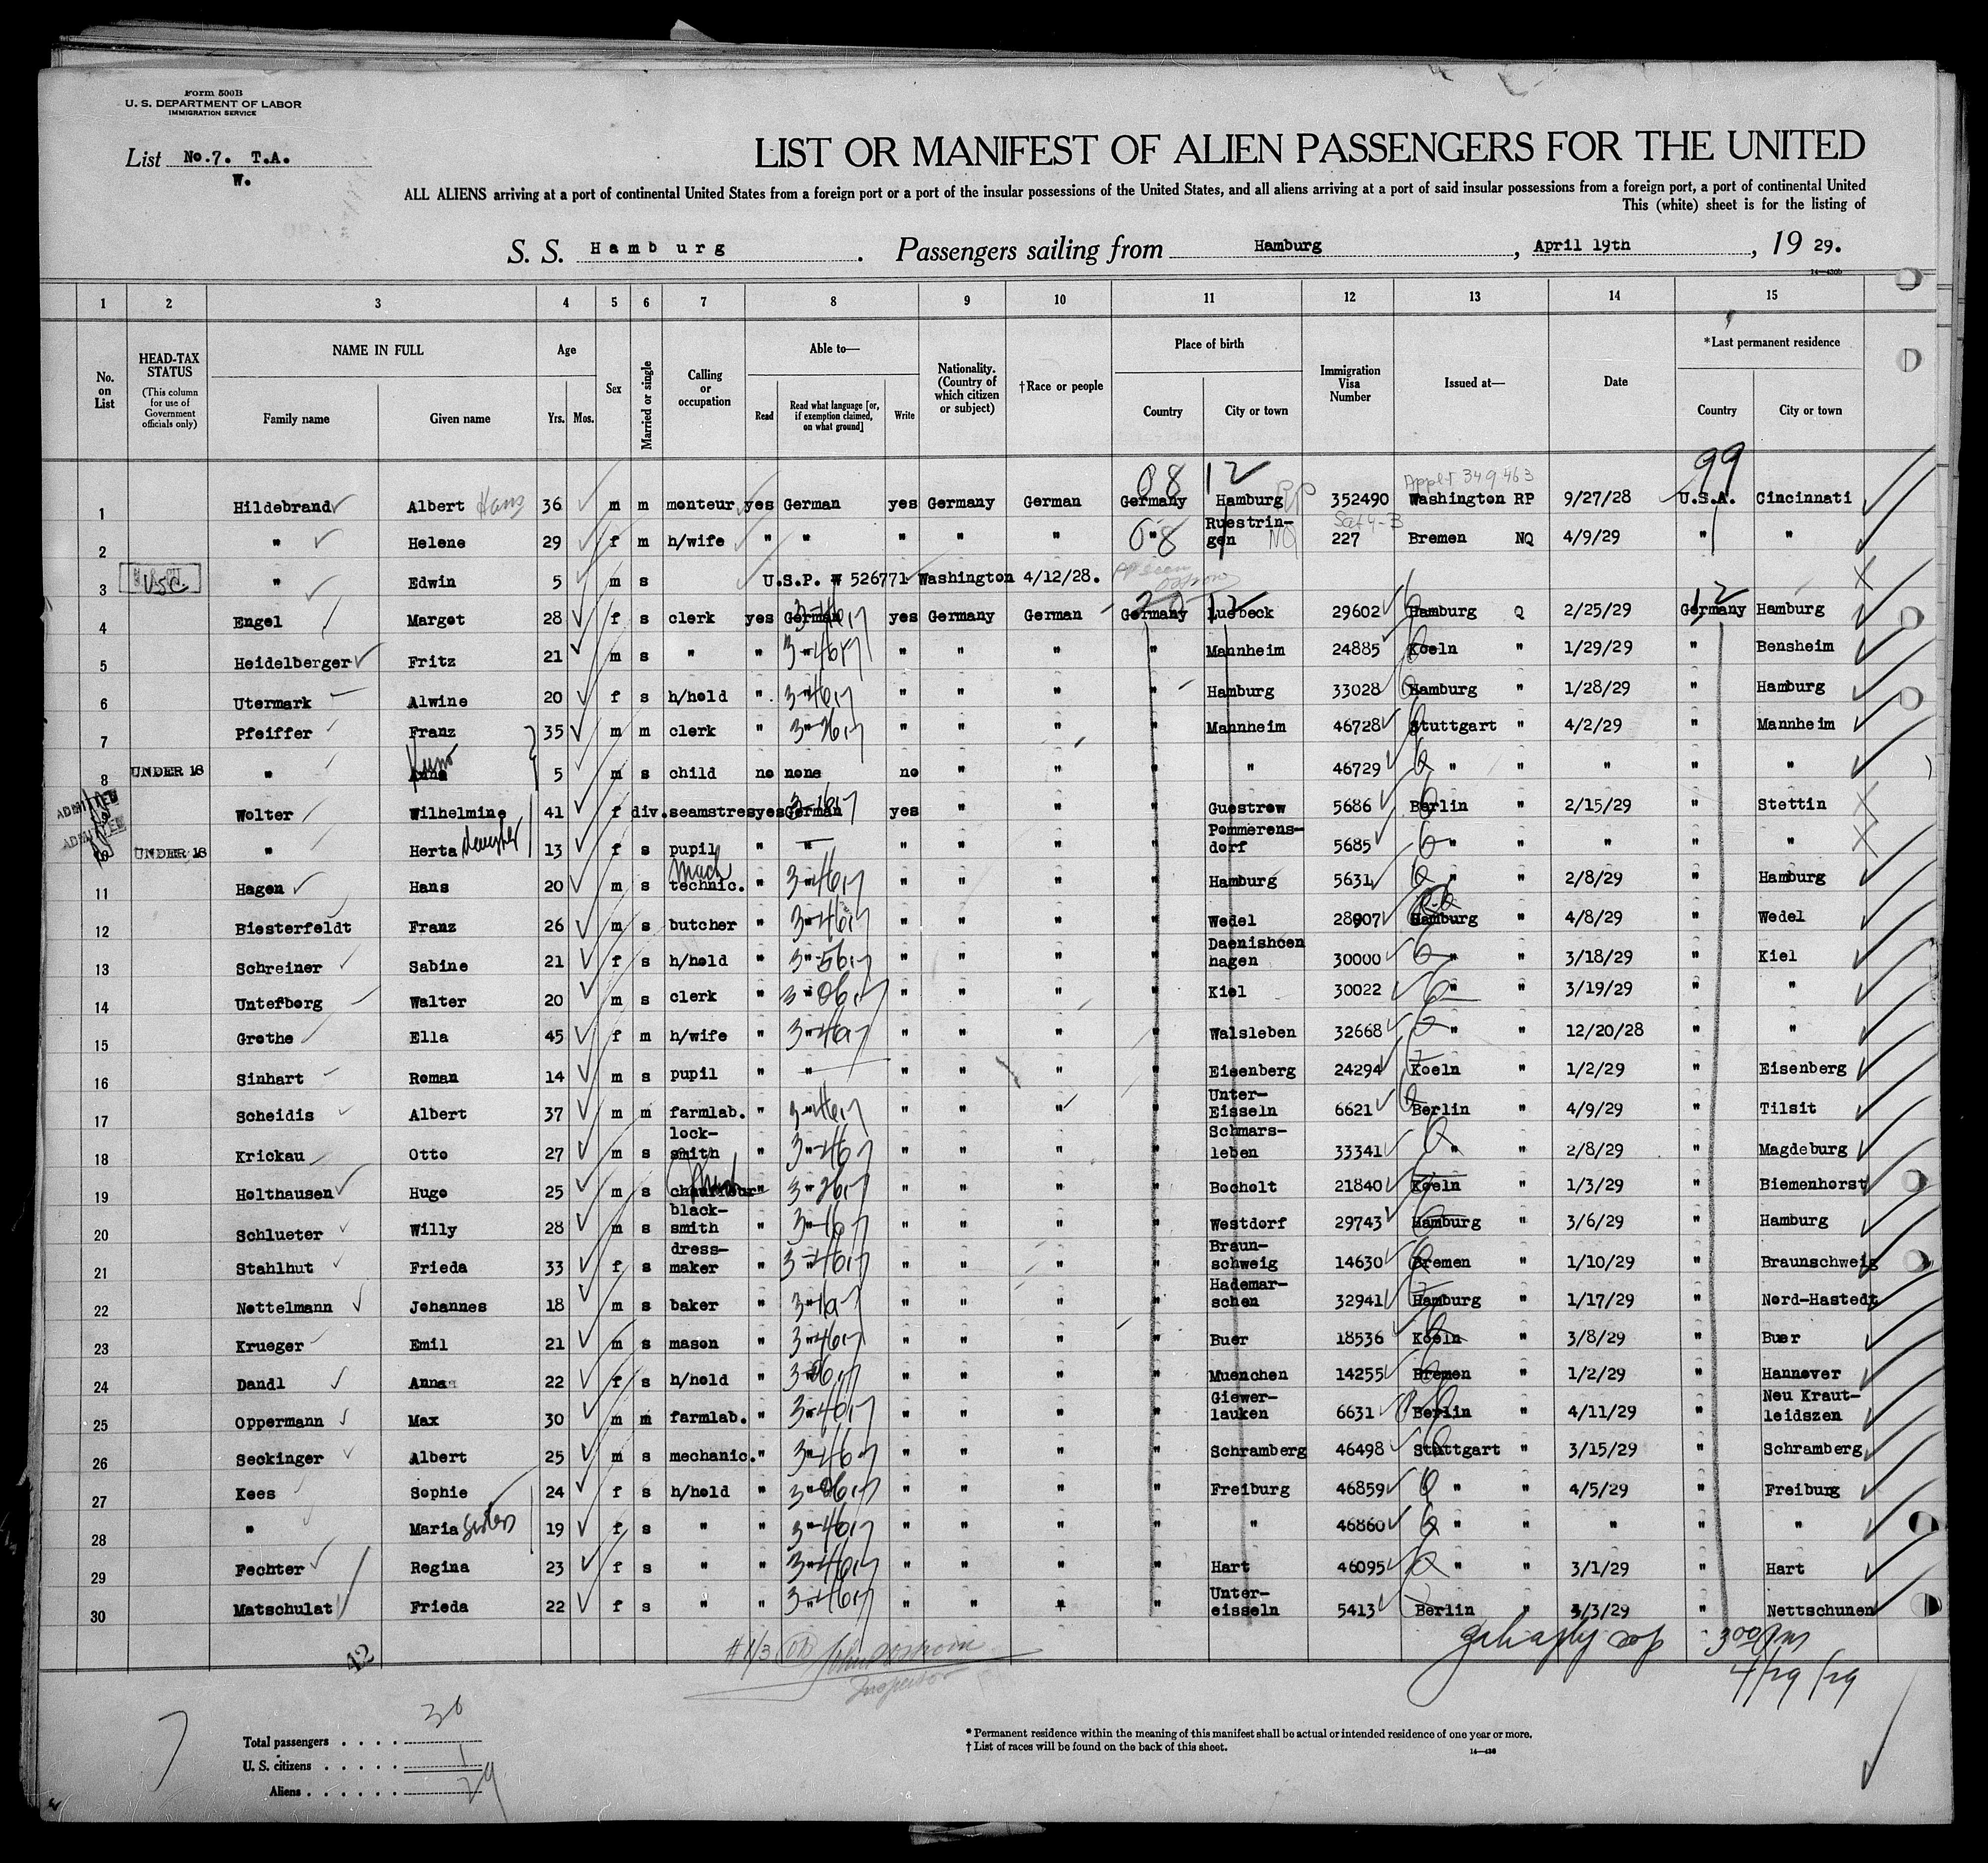 Form 500B
U. S. DEPARTMENT OF LABOR
IMMIGRATION SERVICE
List No.7. T.A.
W.
LIST OR MANIFEST OF ALIEN PASSENGERS FOR THE UNITED
ALL ALIENS arriving at a port of continental United States from a foreign port or a port of the insular possessions of the United States, and all aliens arriving at a port of said insular possessions from a foreign port, a port of continental United
This (white) sheet is for the listing of
S. S. Hamburg . Passengers sailing from Hamburg , April 19th , 19 29.
14—430b
1 2 3 4 5 6 7 8 9 10 11 12 13 14 15
No. on List
HEAD-TAX STATUS (This column for use of Government officials only)
NAME IN FULL Family name Given name
Age Yrs. Mos.
Sex
Married or single
Calling or occupation
Able to— Read Read what language [or, if exemption claimed, on what ground] Write
Nationality. (Country of which citizen or subject)
†Race or people
Place of birth Country City or town
Immigration Visa Number
Issued at—
Date
*Last permanent residence Country City or town
08 12 Applet 349463 99
1 Hildebrand Albert Hans 36 m m monteur yes German yes Germany German Germany Hamburg RP 352490 Washington RP 9/27/28 U.S.A. Cincinnati
2 " Helene 29 f m h/wife " " " " " 08 " Ruestrin-gen NQ 227 Bremen NQ 4/9/29 " "
3 USC " Edwin 5 m s U.S.P. # 526771 Washington 4/12/28.
4 Engel Margot 28 f s clerk yes German yes Germany German Germany Luebeck 29602 Hamburg Q 2/25/29 Germany Hamburg
5 Heidelberger Fritz 21 m s " " " " " " Mannheim 24885 Koeln " 1/29/29 " Bensheim
6 Utermark Alwine 20 f s h/hold " " " " " Hamburg 33028 Hamburg " 1/28/29 " Hamburg
7 Pfeiffer Franz 35 m m clerk " " " " " Mannheim 46728 Stuttgart " 4/2/29 " Mannheim
8 UNDER 16 " Kuno 5 m s child no none no " " " " 46729 " " " " "
ADMITTED
ADMITTED
9 Wolter Wilhelmine 41 f div. seamstres yes German yes " " " Guestrow 5686 Berlin " 2/15/29 " Stettin
10 UNDER 16 " Herta daughter 13 f s pupil " " " " " " Pommerens-dorf 5685 " " " " "
11 Hagen Hans 20 m s Mach technic. " " " " " Hamburg 5631 " " 2/8/29 " Hamburg
12 Biesterfeldt Franz 26 m s butcher " " " " " Wedel 28907 Hamburg " 4/8/29 " Wedel
13 Schreiner Sabine 21 f s h/hold " " " " " Daenishoen hagen 30000 " " 3/18/29 " Kiel
14 Unterborg Walter 20 m s clerk " " " " " Kiel 30022 " " 3/19/29 " "
15 Grothe Ella 45 f m h/wife " " " " " Walsleben 32668 " " 12/20/28 " "
16 Sinhart Roman 14 m s pupil " " " " " " Eisenberg 24294 Koeln " 1/2/29 " Eisenberg
17 Scheidis Albert 37 m m farmlab. " " " " " Unter-Eisseln 6621 Berlin " 4/9/29 " Tilsit
18 Krickau Otto 27 m s lock-smith " " " " " Schmars-leben 33341 " " 2/8/29 " Magdeburg
19 Holthausen Hugo 25 m s chauffeur " " " " " Bocholt 21840 Koeln " 1/3/29 " Biemenhorst
20 Schlueter Willy 28 m s black-smith " " " " " Westdorf 29743 Hamburg " 3/6/29 " Hamburg
21 Stahlhut Frieda 33 f s dress-maker " " " " " Braun-schweig 14630 Bremen " 1/10/29 " Braunschweig
22 Nottelmann Johannes 18 m s baker " " " " " Hademar-schen 32941 Hamburg " 1/17/29 " Nord-Hastedt
23 Krueger Emil 21 m s mason " " " " " Buer 18536 Koeln " 3/8/29 " Buer
24 Dandl Anna 22 f s h/hold " " " " " Muenchen 14255 Bremen " 1/2/29 " Hannover
25 Oppermann Max 30 m m farmlab. " " " " " Giewer-lauken 6631 Berlin " 4/11/29 " Neu Kraut-leidszen
26 Seckinger Albert 25 m s mechanic. " " " " " Schramberg 46498 Stuttgart " 3/15/29 " Schramberg
27 Kees Sophie 24 f s h/hold " " " " " Freiburg 46859 " " 4/5/29 " Freiburg
28 " Maria sisters 19 f s " " " " " " " 46860 " " " " "
29 Fechter Regina 23 f s " " " " " " Hart 46095 " " 3/1/29 " Hart
30 Matschulat Frieda 22 f s " " " " " " Unter-eisseln 5413 Berlin " 3/3/29 " Nettschunen
42
#1/3 Inspector
300 Pm
4/29/29
Total passengers . . . . 30
U. S. citizens . . . . . 1
Aliens . . . . . . 29
* Permanent residence within the meaning of this manifest shall be actual or intended residence of one year or more.
† List of races will be found on the back of this sheet.
14—430